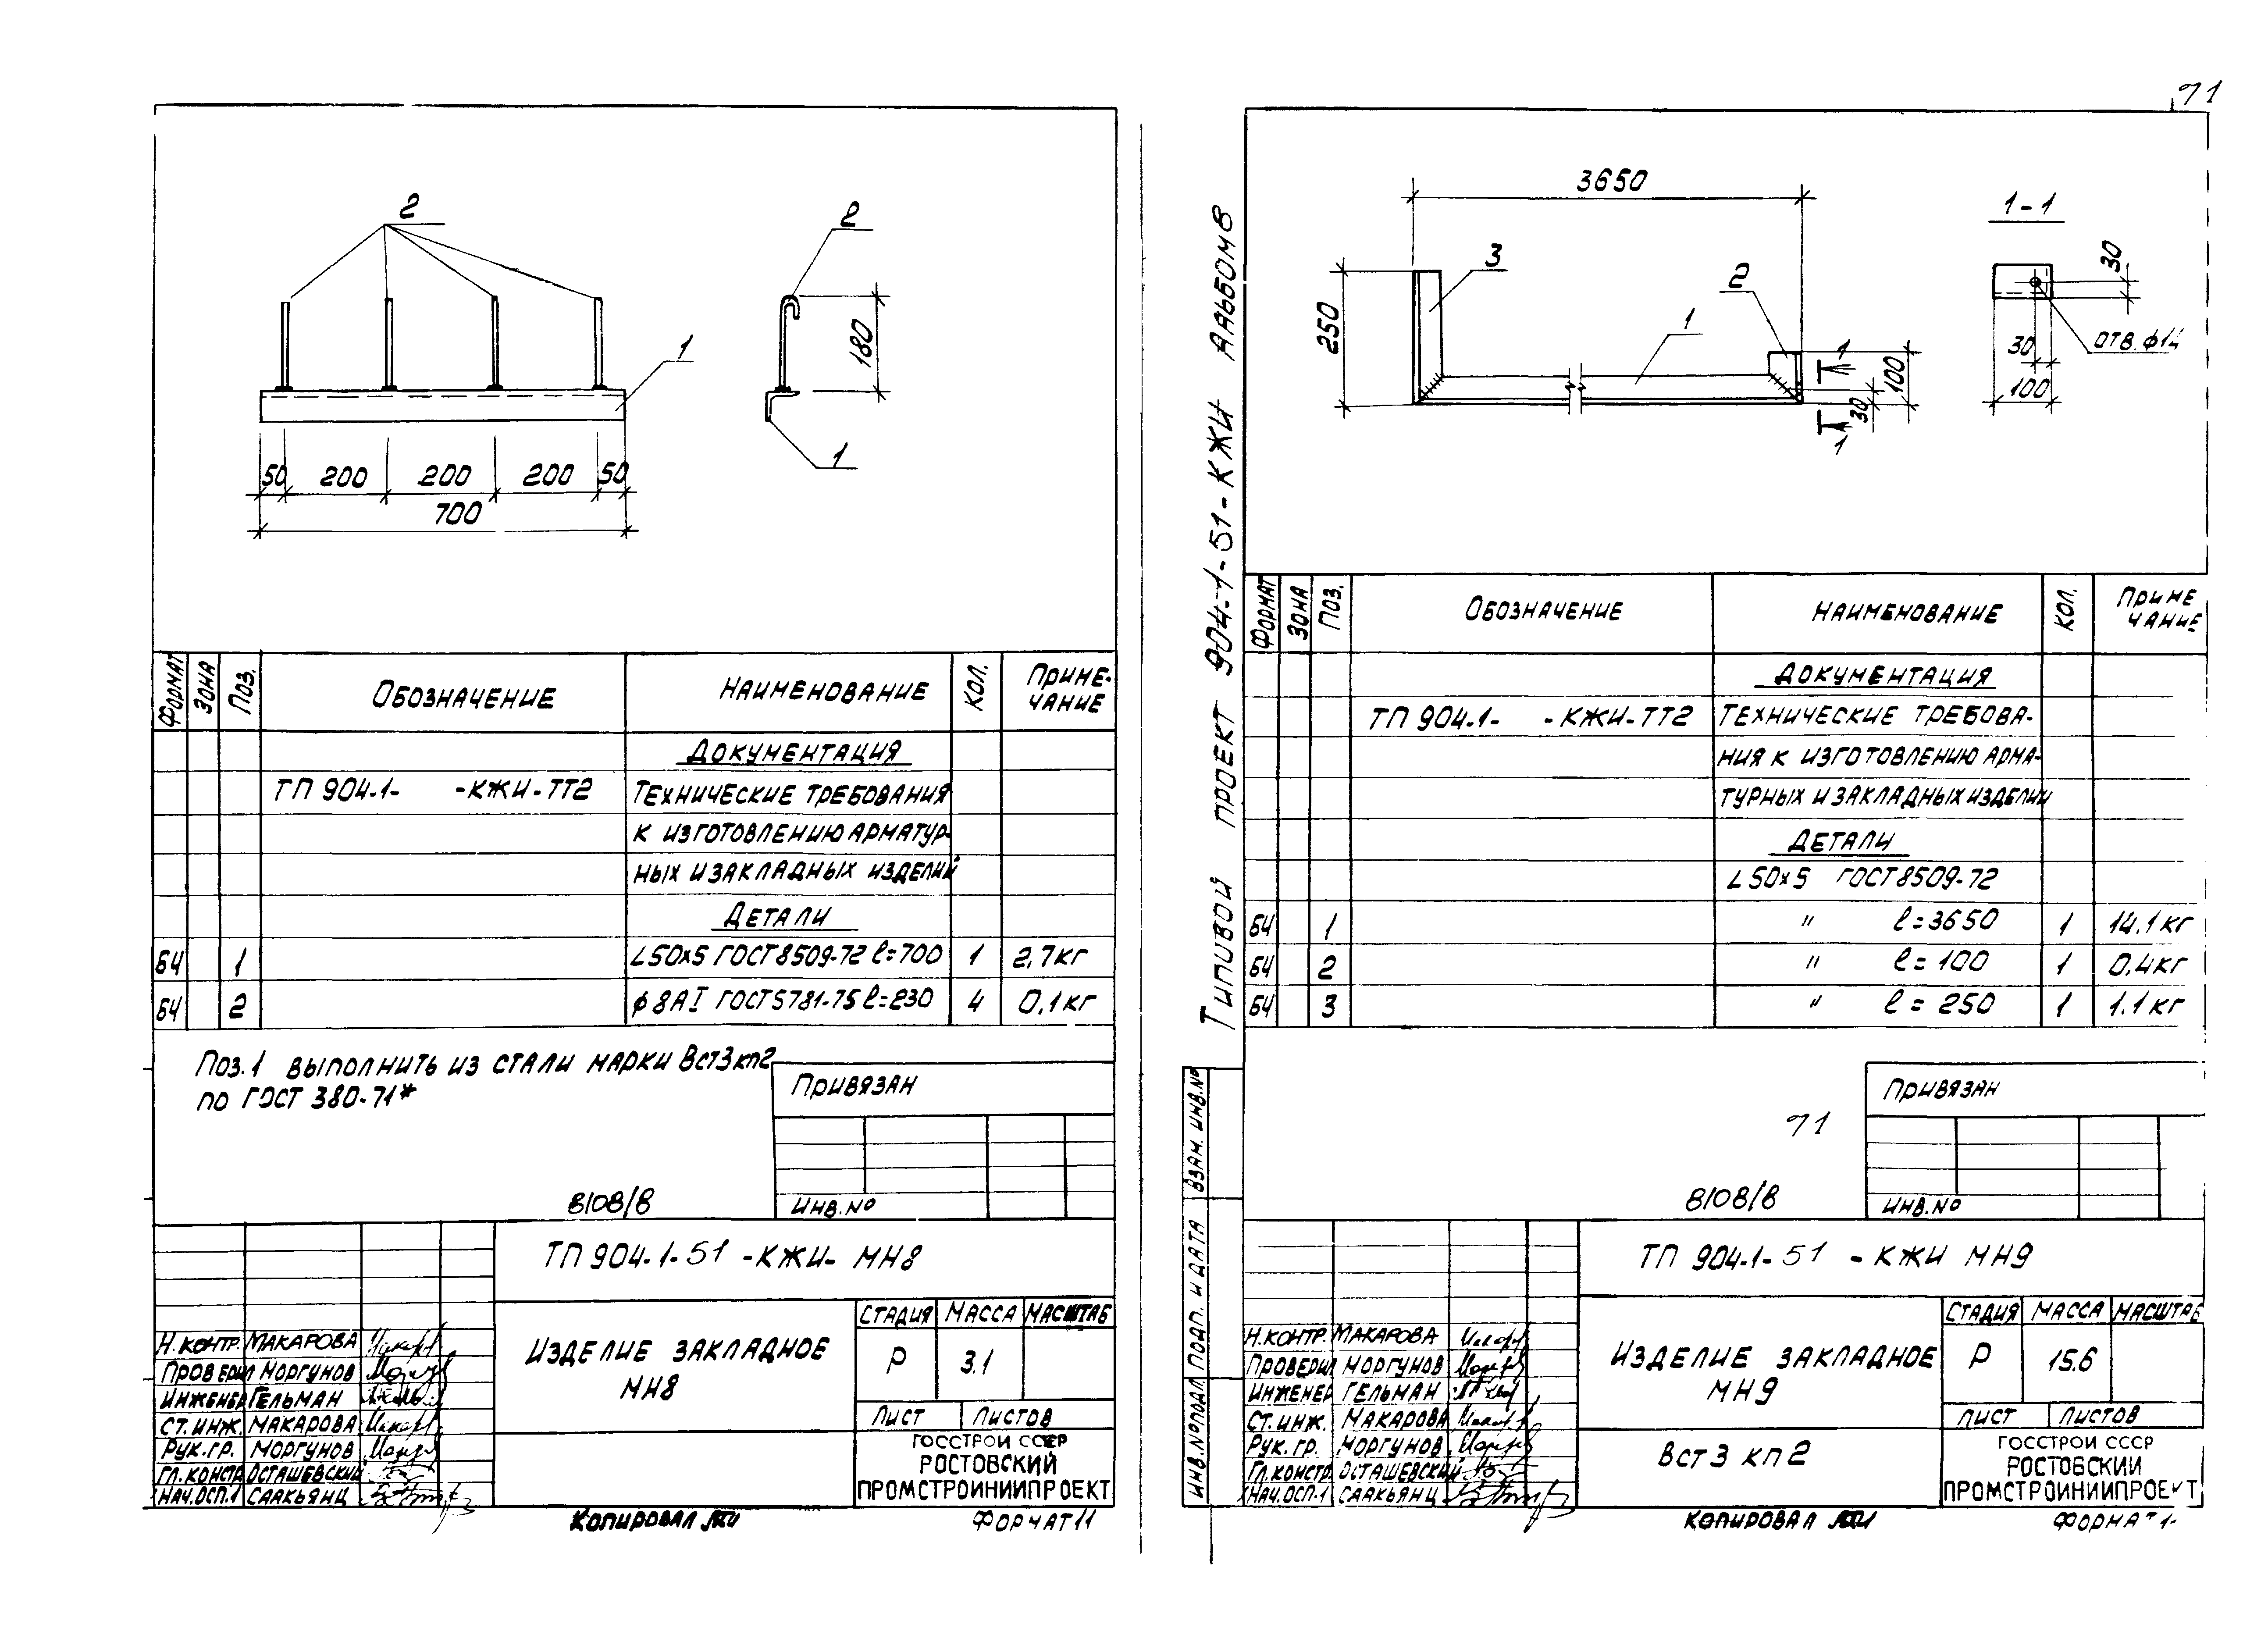 71
2
2
1
180
1
50 200 200 200 50
700
Формат Зона Поз. Обозначение Наименование Кол. Приме-
чание
Документация
ТП 904-1- -КЖИ-ТТ2 Технические требования
к изготовлению арматур-
ных и закладных изделий
Детали
БЧ 1 L50×5 ГОСТ 8509-72 ℓ=700 1 2,7кг
БЧ 2 ф8АI ГОСТ 5781-75 ℓ=230 4 0,1кг
Поз.1 выполнить из стали марки Вст3кп2
по ГОСТ 380-71*
Привязан
8108/8
Инв.№
ТП 904-1-51 -КЖИ- МН8
Изделие закладное
МН8
Стадия Масса Масштаб
Р 3.1
Лист Листов
Госстрой СССР
Ростовский
Промстройниипроект
Н.контр. Макарова
Проверил Моргунов
Инженер Гельман
Ст.инж. Макарова
Рук.гр. Моргунов
Гл.констр. Осташевский
Нач.ОСП-1 Саакьянц
Копировал
Формат 11
Типивой проект 904-1-51-КЖИ Альбом 8
3650
1-1
3
2
1
250
1
100
30
1
30
30
отв. ф14
100
Формат Зона Поз. Обозначение Наименование Кол. Приме
чание
Документация
ТП 904-1- -КЖИ-ТТ2 Технические требова-
ния к изготовлению арма-
турных и закладных изделий
Детали
L50×5 ГОСТ 8509-72
БЧ 1 " ℓ=3650 1 14.1кг
БЧ 2 " ℓ=100 1 0.4кг
БЧ 3 " ℓ=250 1 1.1кг
Привязан
71
8108/8
Инв.№
Взам. инв.№
Подп. и дата
Инв.№подл.
ТП 904-1-51 -КЖИ МН9
Изделие закладное
МН9
Вст3 кп2
Стадия Масса Масштаб
Р 15.6
Лист Листов
Госстрой СССР
Ростовский
Промстройниипроект
Н.контр. Макарова
Проверил Моргунов
Инженер Гельман
Ст.инж. Макарова
Рук.гр. Моргунов
Гл.констр. Осташевский
Нач.ОСП-1 Саакьянц
Копировал
Формат 1